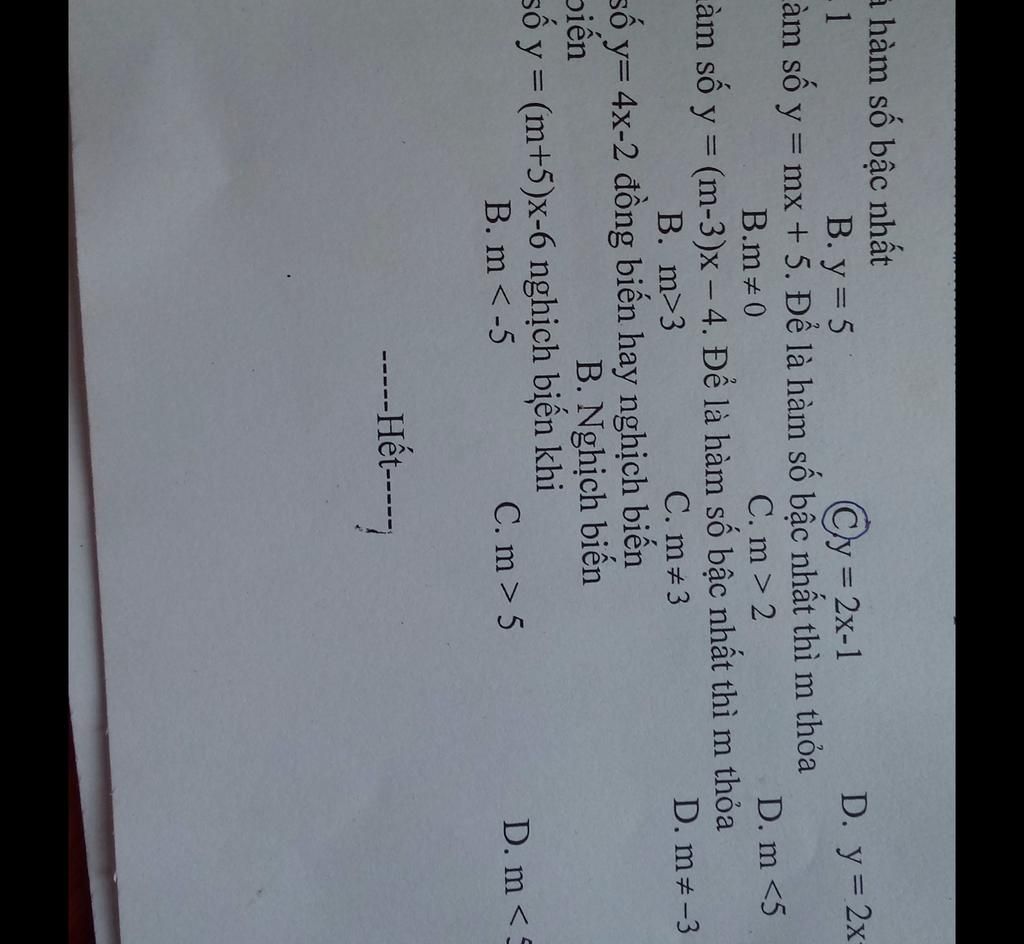 hàm số bậc nhất
1 B. y = 5 C y = 2x-1 D. y = 2x
àm số y = mx + 5. Để là hàm số bậc nhất thì m thỏa
B.m ≠ 0 C. m > 2 D. m <5
àm số y = (m-3)x – 4. Để là hàm số bậc nhất thì m thỏa
B. m>3 C. m ≠ 3 D. m ≠ –3
số y= 4x-2 đồng biến hay nghịch biến
biến B. Nghịch biến
số y = (m+5)x-6 nghịch biến khi
B. m < -5 C. m > 5 D. m <
-----Hết-----